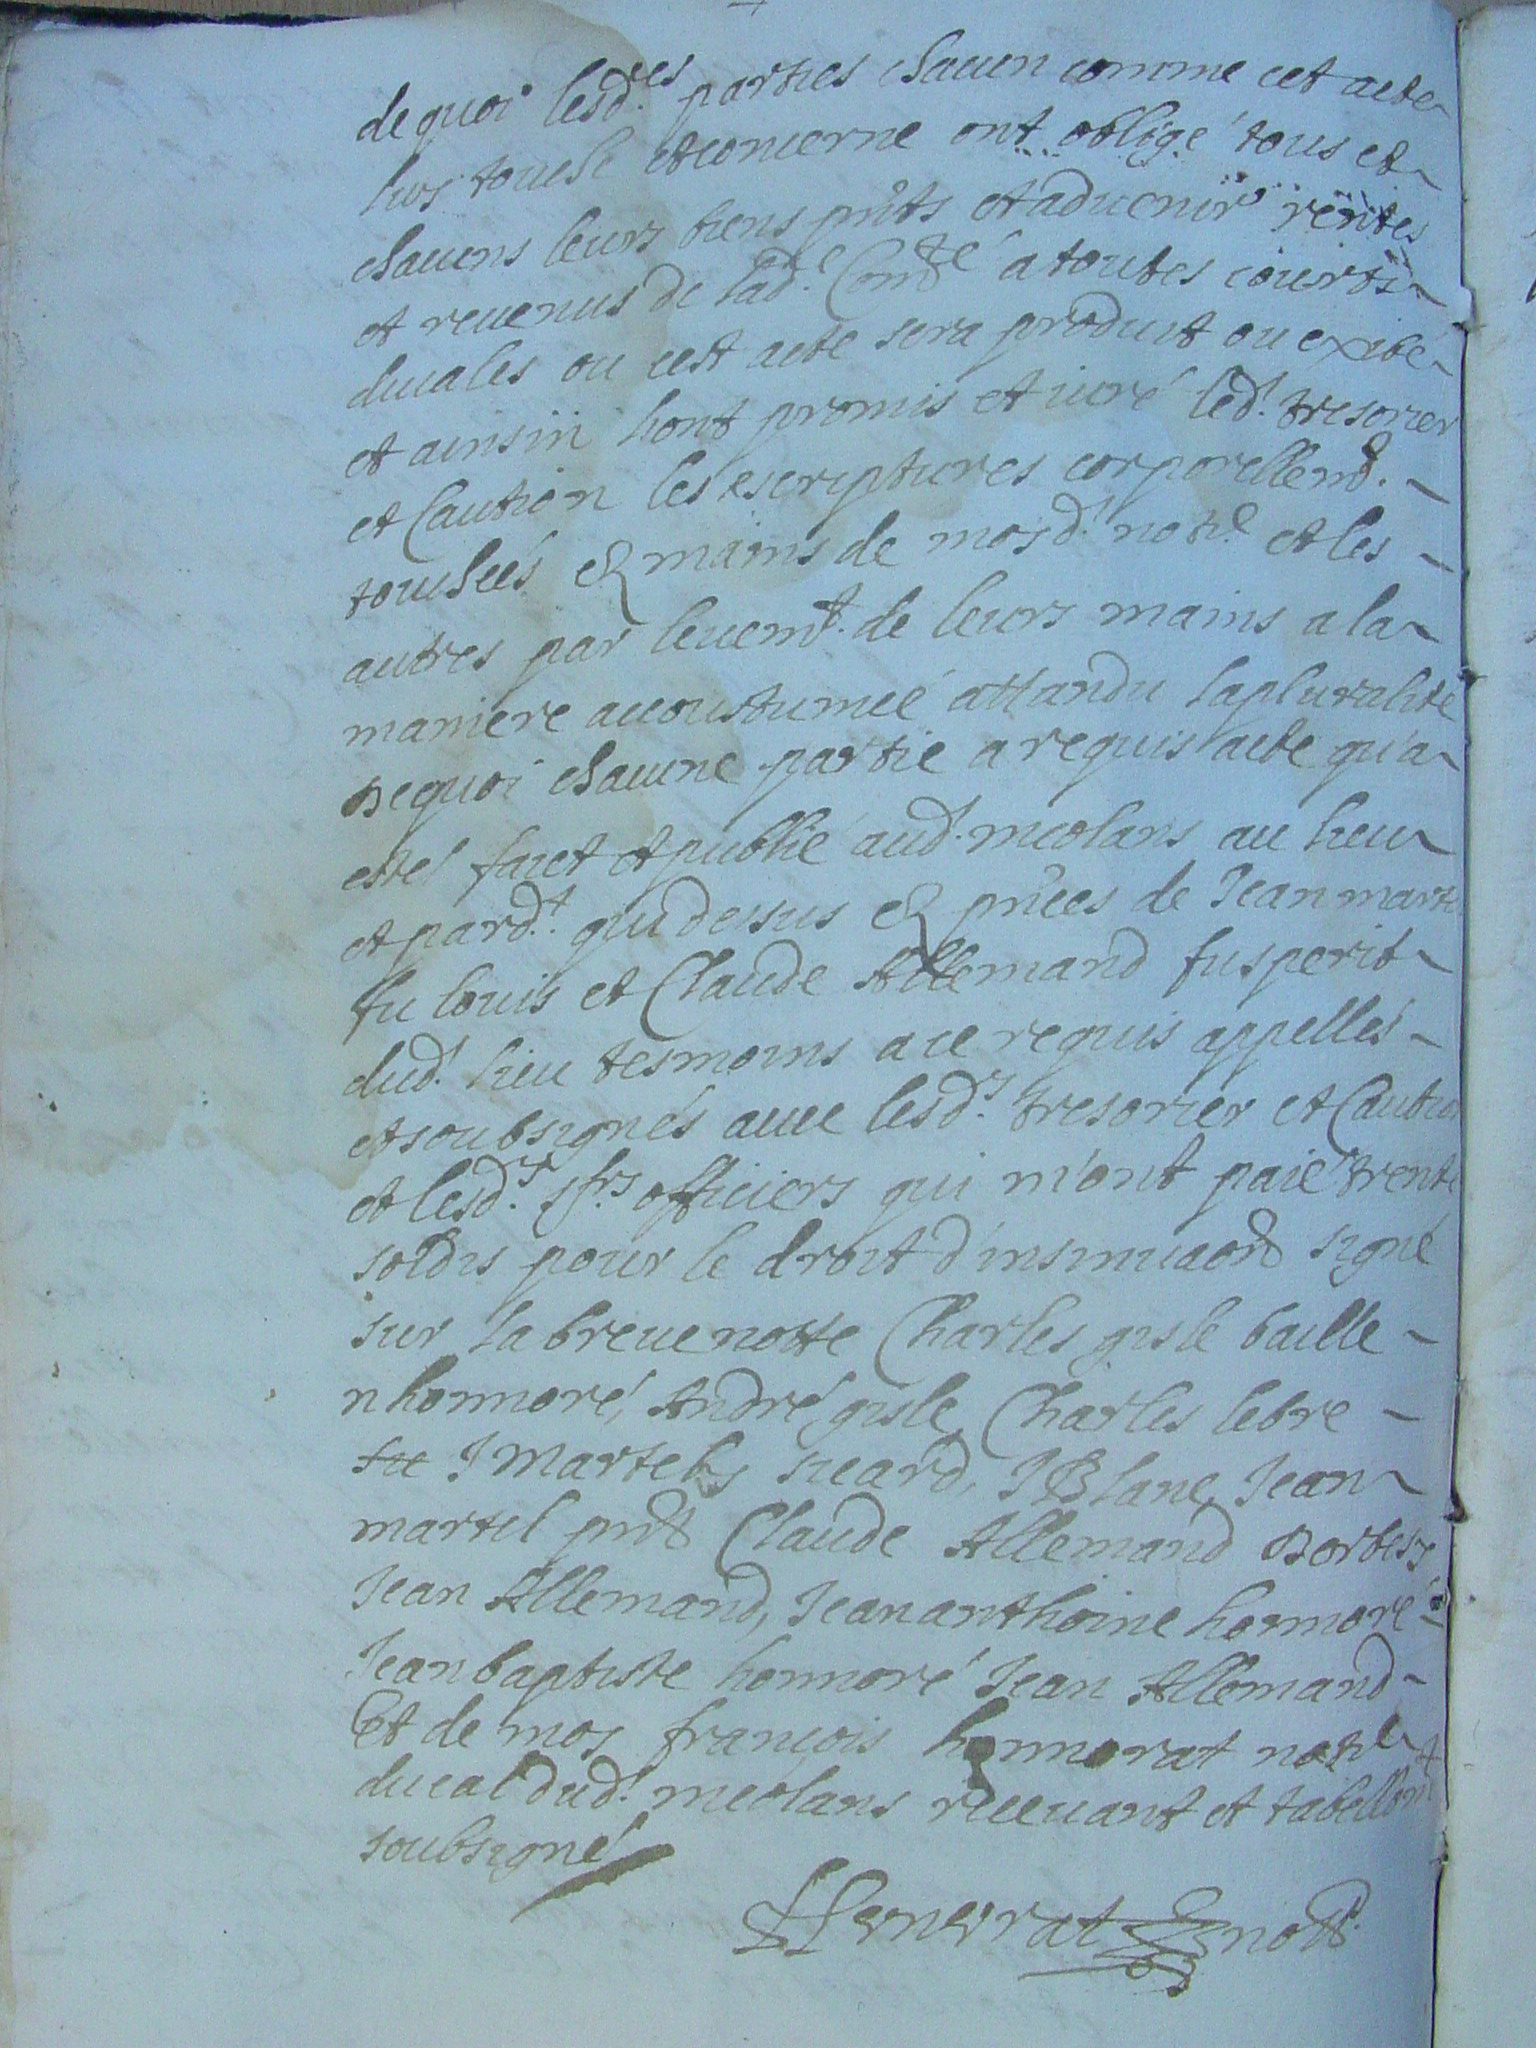 de quoi lesd.res parties chacun comme cet acte
lus touche et concerne ont obligé tous et
chacuns leurs biens pnts et aduenir rentes
et reuenus de lad.e Com.té a toutes courts
ducales ou cest acte sera produit ou exibé
et ainsin hont promis et iuré led. tresorier
et Caution les escriptures corporellemt.
touchées es mains de moyd. not.e et les
autres par leuemt. de leurs mains a la
maniere accoustumeé attandu la pluralité
De quoi chacune partie a requis acte qu'a
esté faict et publié aud. meolans au lieu
et pard.t qui dessus es pnces de Jean martel
fu louis et Claude Allemand fu sperit
dud. lieu tesmoins a ce requis appellés
et soubsignés auec lesd.s tresorier et Caution
et lesd.s srs officiers qui m'ont paié trente
soldis pour le droit d'insinuaon signé
sur la breue notte Charles gisle baille
n honnoré, André gisle, Charles lebre
J Martel, sicard, J Blanc, Jean
martel pnt Claude Allemand
Jean Allemand, Jean anthoine honnoré
Jean baptiste honnoré Jean Allemand
Et de moy françois honnorat not.e
ducal dud. meolans receuant et tabellion
soubsigné
Honnorat nott.